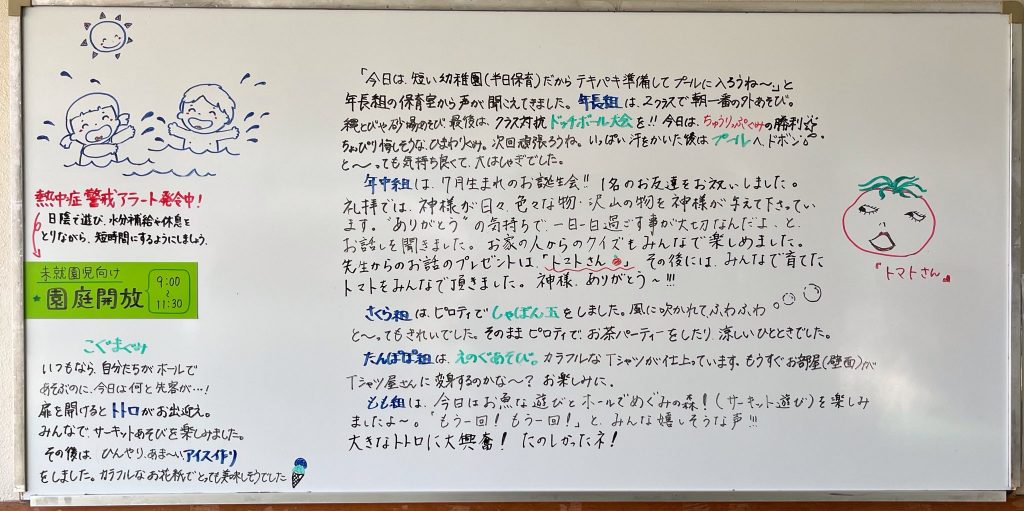 熱中症警戒アラート発令中！
日陰で遊び、水分補給や休息を
とりながら、短時間にするようにしましょう。
未就園児向け
★園庭開放
9:00
〜
11:30
こぐまぐみ
いつもなら、自分たちがホールで
あそぶのに、今日は何と先客が…！
扉を開けるとトトロがお出迎え。
みんなで、サーキットあそびを楽しみました。
その後は、ひんやり、あま〜いアイス作り
をしました。カラフルなお花紙でとっても美味しそうでした
「今日は、短い幼稚園(半日保育)だから テキパキ準備して プールに入ろうね〜」と
年長組の保育室から声が聞こえてきました。年長組は、2クラスで朝一番の外あそび。
縄とびや砂場あそび、最後は、クラス対抗ドッヂボール大会を!! 今日は、ちゅうりっぷぐみの勝利
ちょぴり悔しそうな、ひまわりぐみ。次回頑張ろうね。いっぱい汗をかいた後はプールへドボン。
と〜っても気持ち良くて、大はしゃぎでした。
年中組は、7月生まれのお誕生会!! 1名のお友達をお祝いしました。
礼拝では、神様が日々、色々な物・沢山の物を神様が与えて下さってい
ます。"ありがとう"の気持ちで、一日一日過ごす事が大切なんだよ、と
お話しを聞きました。お家の人からのクイズもみんなで楽しめました。
先生からのお話のプレゼントは、「トマトさん」。その後には、みんなで育てた
トマトをみんなで頂きました。神様、ありがとう〜!!!
さくら組は、ピロティでしゃぼん玉をしました。風に吹かれてふわふわ
と〜ってもきれいでした。そのままピロティで、お茶パーティーをしたり、涼しいひとときでした。
たんぽぽ組は、えのぐあそび。カラフルなTシャツが仕上っています。もうすぐお部屋(壁面)が
Tシャツ屋さんに変身するのかな〜？お楽しみに。
もも組は、今日はお魚な遊びとホールでめぐみの森！(サーキット遊び)を楽しみ
ましたよ〜。「もう一回！もう一回！」と、みんな嬉しそうな声!!!
大きなトトロに大興奮！ たのしかったネ！
『トマトさん』